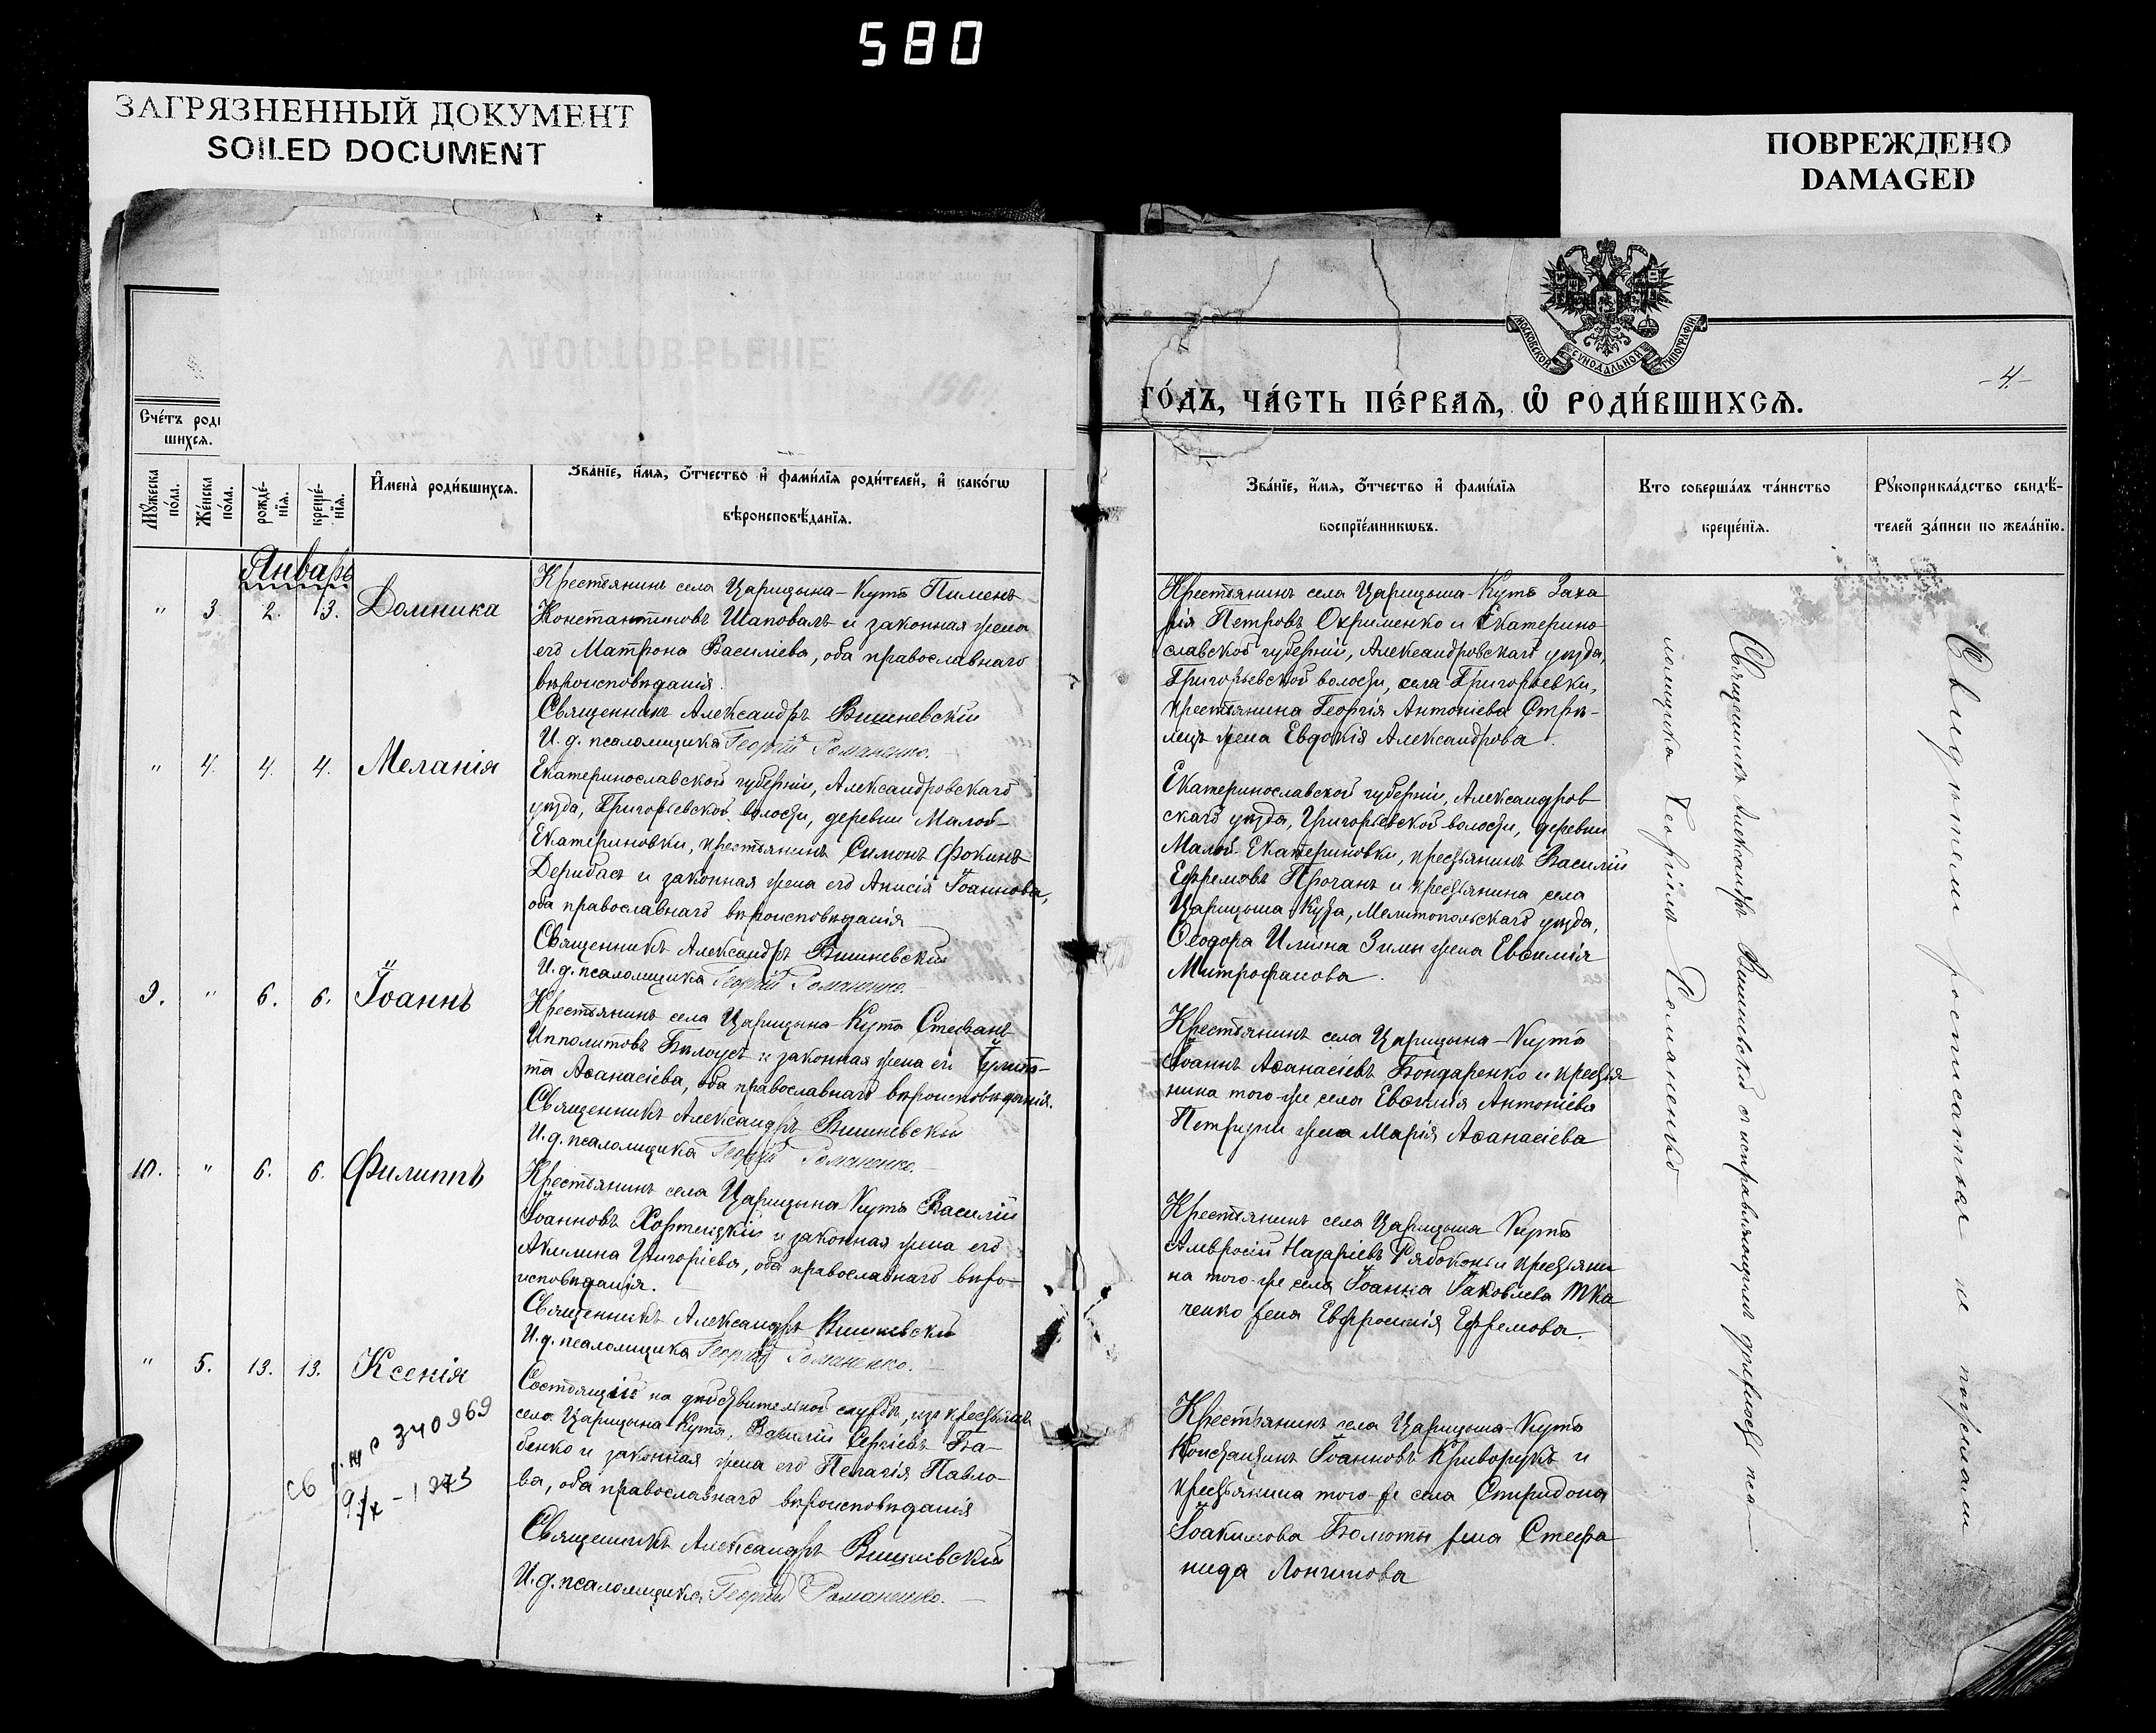 580
ЗАГРЯЗНЕННЫЙ ДОКУМЕНТ
SOILED DOCUMENT
ПОВРЕЖДЕНО
DAMAGED
МОСКОВСКОЙ СѴНОДАЛЬНОЙ ТИПОГРАФІИ
УДОСТОВѢРЕНІЕ
-4.-
ГО́ДЪ, ЧА́СТЬ ПЕ́РВАѦ, Ѡ҆ РОДИ́ВШИХСѦ.
Сче́тъ роди
шихсѧ.
Мꙋ́жеска по́ла.
Же́нска по́ла.
рожде́-
нїѧ.
креще́-
нїѧ.
И҆мена̀ роди́вшихсѧ.
Зва́нїе, и҆́мѧ, ѻ҆́тчество и҆ фами́лїѧ роди́телей, и҆ како́гѡ
вѣроисповѣ́данїѧ.
Зва́нїе, и҆́мѧ, ѻ҆́тчество и҆ фами́лїѧ
воспрїе́мникѡвъ.
Кто соверша́лъ та́инство
креще́нїѧ.
Рꙋкоприкла́дство свидѣ́-
телей за́писи по жела́нїю.
Январь
" 3. 2. 13. Домника
Крестьянинъ села Царицына-Кута Пименъ
Константиновъ Шаповалъ и законная жена
его Матрона Василіева, оба православнаго
вѣроисповѣданія.
Священникъ Александръ Вишневскій
И. д. псаломщика Георгій Романенко.
Крестьянинъ села Царицына-Кута Заха
рія Петровъ Охрименко и Екатерино-
славской губерніи, Александровскаго уѣзда,
Григорьевской волости, села Григорьевки,
крестьянина Георгія Антоніева Стрѣ-
лецъ жена Евдокія Александрова.
" 4. 4. 4. Меланія
Екатеринославской губерніи, Александровскаго
уѣзда, Григорьевской волости, деревни Малой-
Екатериновки, крестьянинъ Симонъ Фокинъ
Дерибасъ и законная жена его Анисія Іоаннова,
оба православнаго вѣроисповѣданія
Священникъ Александръ Вишневскій
И. д. псаломщика Георгій Романенко.
Екатеринославской губерніи, Александров
скаго уѣзда, Григорьевской волости, деревни
Малой-Екатериновки, крестьянинъ Василій
Ефремовъ Прочанъ и крестьянина села
Царицына Кута, Мелитопольскаго уѣзда,
Ѳеодора Илиина Зимы жена Евѳимія
Митрофанова.
9. " 6. 6. Іоаннъ
Крестьянинъ села Царицына-Кута Стефанъ
Ипполитовъ Бѣлоусъ и законная жена его Іулит-
та Аѳанасіева, оба православнаго вѣроисповѣданія.
Священникъ Александръ Вишневскій
И. д. псаломщика Георгій Романенко.
Крестьянинъ села Царицына-Кута
Іоаннъ Аѳанасіевъ Бондаренко и крестья
нина того-же села Евѳимія Антоніева
жена Марія Аѳанасіева
10. " 6. 6. Филиппъ
Крестьянинъ села Царицына-Кута Василій
Іоанновъ Хортицкій и законная жена его
Акилина Григоріева, оба православнаго вѣро-
исповѣданія.
Священникъ Александръ Вишневскій
И. д. псаломщика Георгій Романенко.
Крестьянинъ села Царицына Кута
Амвросій Назаріевъ Рябоконь и крестьяни
на того-же села Іоанна Іаковлева Тка
ченко жена Евфросинія Ефремова.
" 5. 13. 13. Ксенія
Состоящій на дѣйствительной службѣ, изъ крестьянъ
села Царицына-Кута, Василій Сергіевъ Ба-
бенко и законная жена его Пелагія Павло-
ва, оба православнаго вѣроисповѣданія
Священникъ Александръ Вишневскій
И. д. псаломщика Георгій Романенко.
Крестьянинъ села Царицына-Кута
Константинъ Іоанновъ Криворукъ и
крестьянина того-же села Спиридона
Іоакимова Болюты жена Стефа
нида Лонгинова
340969
Священникъ Александръ Вишневскій съ исправляющимъ должность пса-
ломщика Георгіемъ Романенко